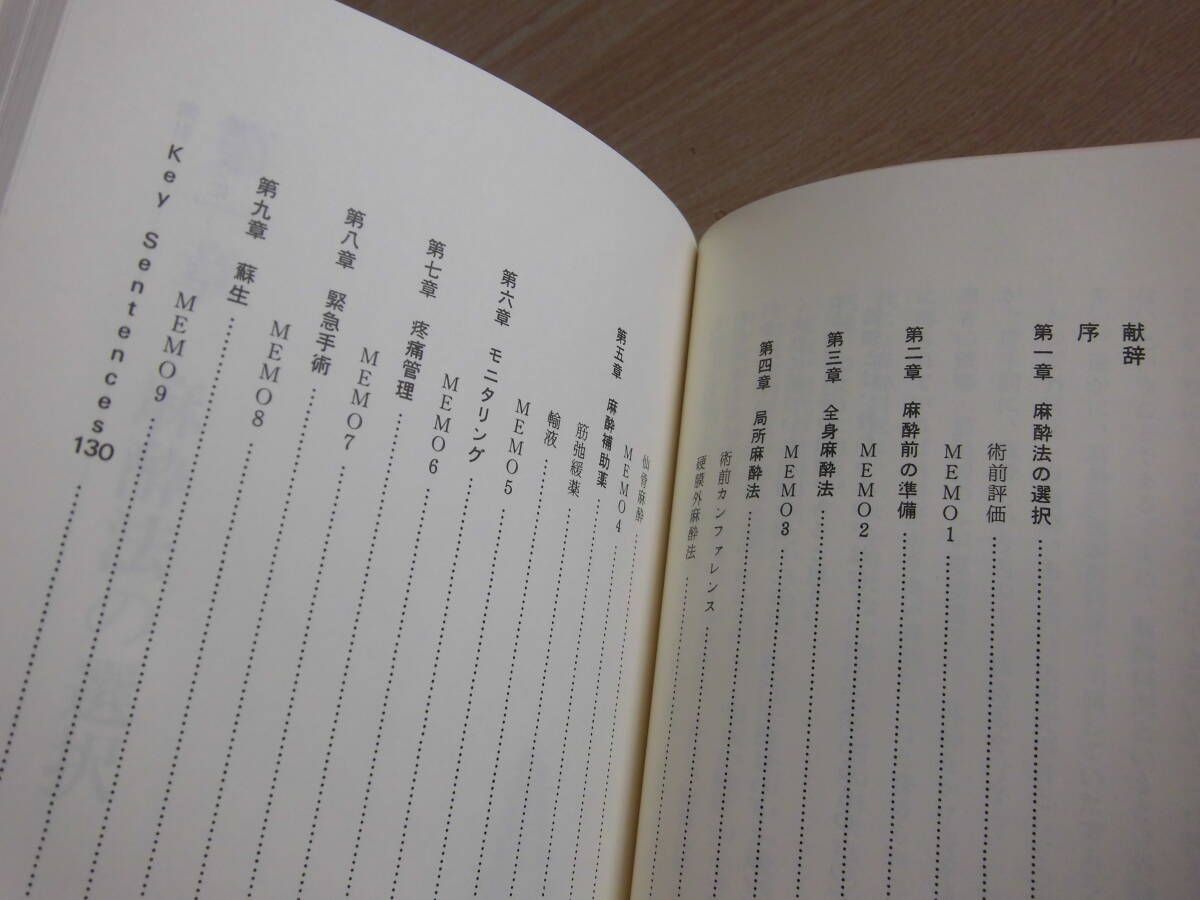 献辞
序
第一章　麻酔法の選択
術前評価
MEMO1
第二章　麻酔前の準備
MEMO2
第三章　全身麻酔法
MEMO3
第四章　局所麻酔法
術前カンファレンス
硬膜外麻酔法
仙骨麻酔
MEMO4
第五章　麻酔補助薬
筋弛緩薬
輸液
MEMO5
第六章　モニタリング
MEMO6
第七章　疼痛管理
MEMO7
第八章　緊急手術
MEMO8
第九章　蘇生
MEMO9
Key Sentences130